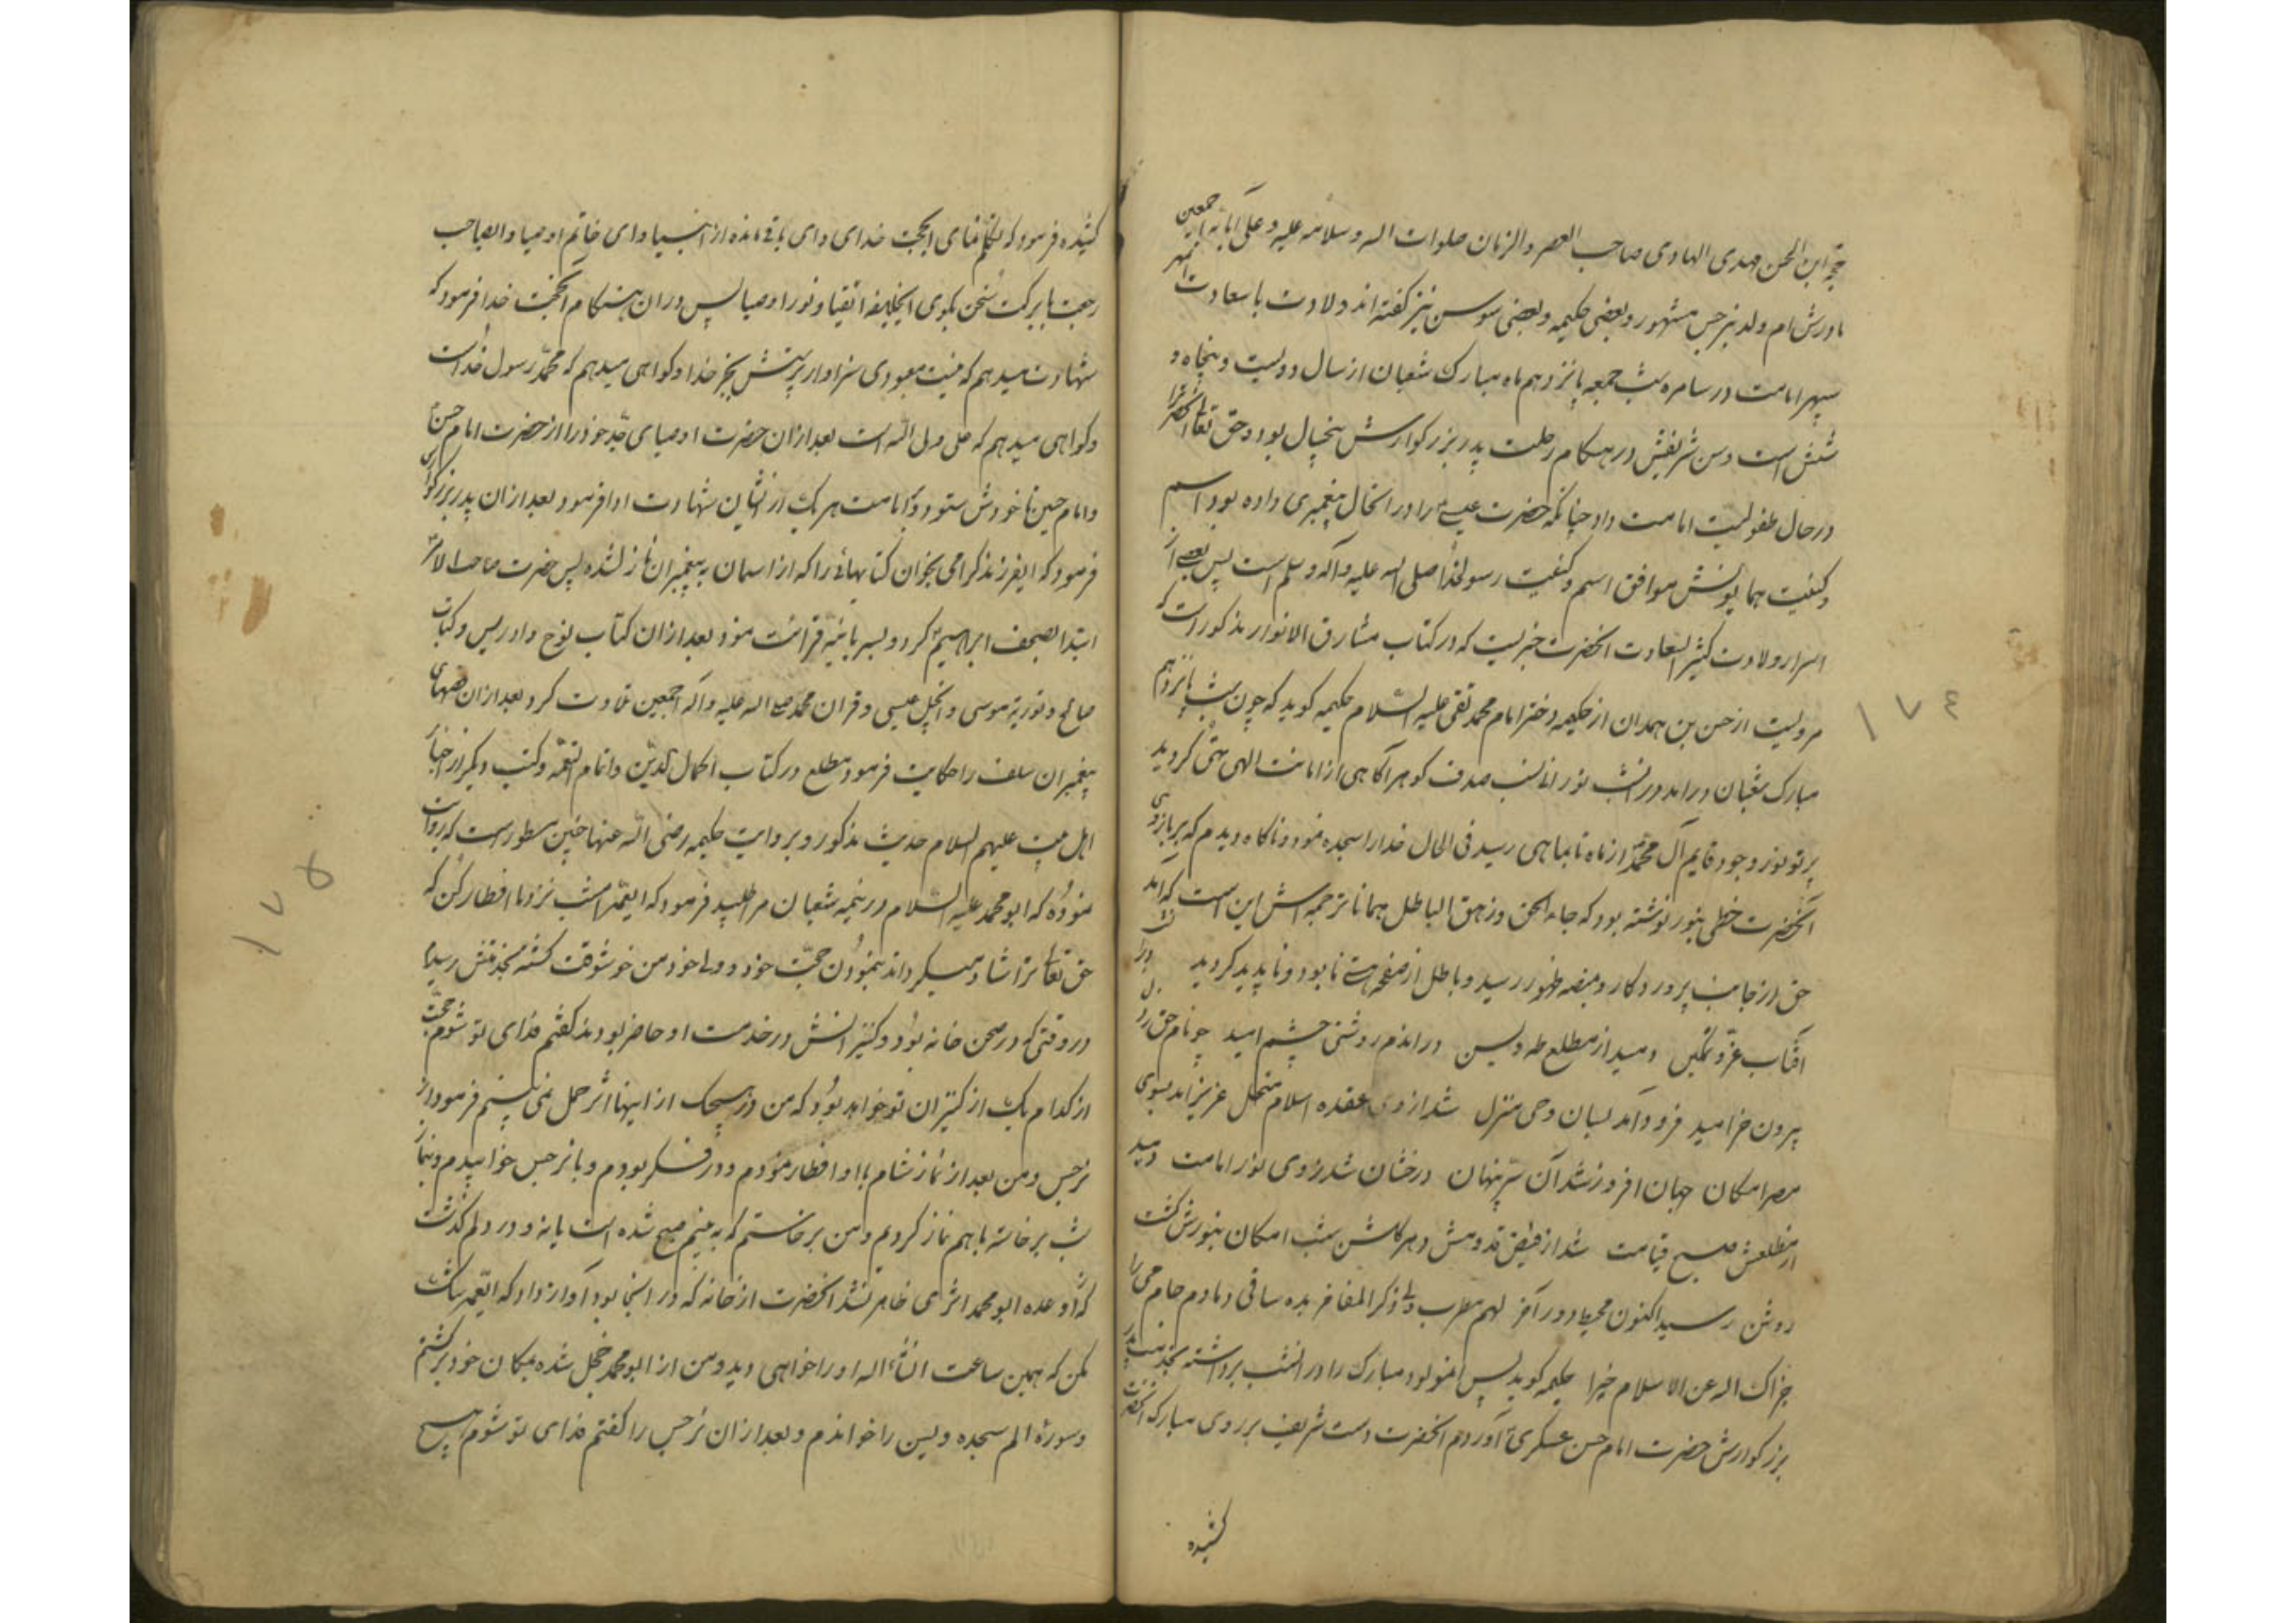 حجة ابن الحسن مهدی الهادی صاحب العصر والزمان صلوات اله وسلامه علیه وعلی آبائه اجمعین
مادرش ام ولد نرجس مشهور وبعضی حکیمه وبعضی سوسن نیز کفته اند ولادت باسعادت
سپهر امامت در سامره شب جمعه پانزدهم ماه مبارک شعبان از سال دویست وپنجاه و
شش است وسن شریفش در هنکام رحلت پدر بزرکوارش پنجسال بود وحق تعالی انحضرترا
در حال طفولیت امامت داد چنانکه حضرت عیسی را در انحال پیغمبری داده بود اسم
وکنیت همایونش موافق اسم وکنیت رسولخدا صلی اله علیه وآله وسلم است پس بعضی از
اسرار ولادت کثیر السعادت انحضرت خبریست که در کتاب مشارق الانوار مذکور است که
مرویست از حسن بن همدان از حکیمه دختر امام محمد تقی علیه السلام حکیمه کوید که چون شب پانزدهم
مبارک شعبان درامد در انشب نورانی نسب صدف کوهر آکاهی از امانت الهی کردید
پرتو نور وجود قایم آل محمد از ماه تا بماهی رسید فی الحال خدارا سجده نمود وناکاه دیدم که بر بازوی
آنحضرت خطی بنور نوشته بود که جاء الحق وزهق الباطل همانا ترجمه اش این است که آمد
حق از جانب پروردکار ومبضه ظهور رسید وباطل از صفحه هستی نابود وناپدید کردید
آفتاب عز وتمکین دمید از مطلع طه ویسن درامدم روشنی چشم امید چو نام حق
بیرون خرامید فرود آمد بسان وحی منزل شد از وی عقده اسلام منحل عزیز امد بسوی
مصر امکان جهان افروز شد آن سر پنهان درخشان شد زروی نور امامت دمید
از مطلعش صبح قیامت شد از فیض قدومش دهر کلشن شب امکان بنورش کشت
روشن رسید اکنون دور آخر لهم مطرب ذکر المفاخر بده ساقی دمادم جام می را
جزاک اله عن الاسلام خیرا حکیمه کوید پس انمولود مبارک را در انشب برداشته بخدمت پدر
بزرکوارش حضرت امام حسن عسکری آوردم انحضرت دست شریف بر روی مبارک انحضرت
کشیده
١٧٤
کشیده فرمود که تکلم نمای ایحجت خدای وای باقی مانده از انبیا وای خاتم اوصیا وایصاحب
رجعت بابرکت سخن بکوی ایخلیفه اتقیا ونور اوصیا پس دران هنکام انحجت خدا فرمود که
شهادت میدهم که نیست معبودی سزاوار پرستش بجز خدا وکواهی میدهم که محمد رسول خداست
وکواهی میدهم که علی ولی الله است بعد ازان حضرت اوصیای جد خود را از حضرت امام حسن
وامام حسین تا خودش ستود وبامامت هر یک از انشان شهادت ادا فرمود بعد ازان پدر بزرکواری
فرمود که ایفرزند کرامی بخوان کتابهائی را که از اسمان به پیغمبران نازل شده پس حضرت صاحب الامر
ابتدا بصحف ابراهیم کرد وبسریانیه قرائت نمود بعد ازان کتاب نوح وادریس وکتاب
صالح وتوریة موسی وانجیل عیسی وقران محمد صلی اله علیه وآله اجمعین تلاوت کرد بعد ازان قصهای
پیغمبران سلف را حکایت فرمود مطلع در کتاب اکمال الدین واتمام النعمه وکتب دیکر از اخبار
اهل بیت علیهم السلام حدیث مذکور وبروایت حکیمه رضی الله عنها چنین مسطور است که روایت
نموده که ابو محمد علیه السلام در نیمه شعبان مرا طلبید فرمود که ایعمه امشب نزد ما افطار کن که
حق تعالی ترا شاد میکرداند بنمودن حجت خود وولی خود من خوشوقت کشته بخدمتش رسیدم
در وقتی که در صحن خانه بود وکنیزانش در خدمت او حاضر بودند کفتم فدای تو شوم حجت
از کدام یک از کنیزان تو خواهد بود که من در هیچیک از اینها اثر حمل نمی بینم فرمود از
نرجس ومن بعد از نماز شام با او افطار نمودم ودر فکر بودم وبا نرجس خوابیدم ونماز
شب برخاسته باهم نماز کردیم ومن برخاستم که به بینم صبح شده است یا نه ودر دلم کذشت
که از وعده ابو محمد اثری ظاهر نشد انحضرت از خانه که در انجا بود آواز داد که ایعمه شک
مکن که همین ساعت انشاء اله او را خواهی دید ومن از ابو محمد خجل شده بمکان خود برکشتم
وسورۀ الم سجده ویسن را خواندم وبعد ازان نرجس را کفتم فدای تو شوم هیچ
١٧٥